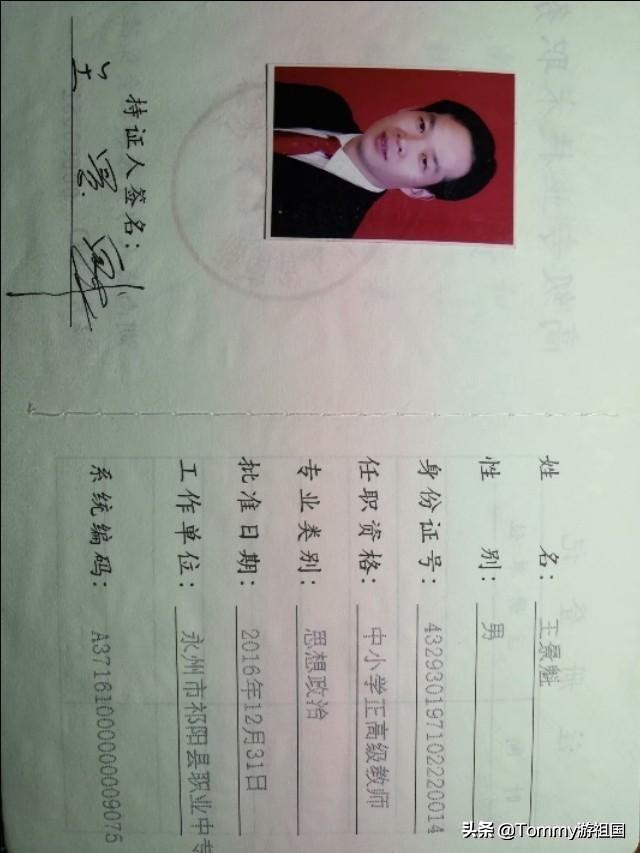 持证人签名：
姓 名： 王景魁
性 别： 男
身份证号： 432930197102220014
任职资格： 中小学正高级教师
专业类别： 思想政治
批准日期： 2016年12月31日
工作单位： 永州市祁阳县职业中专
系统编码： A37161000000009075
头条 @Tommy游祖国